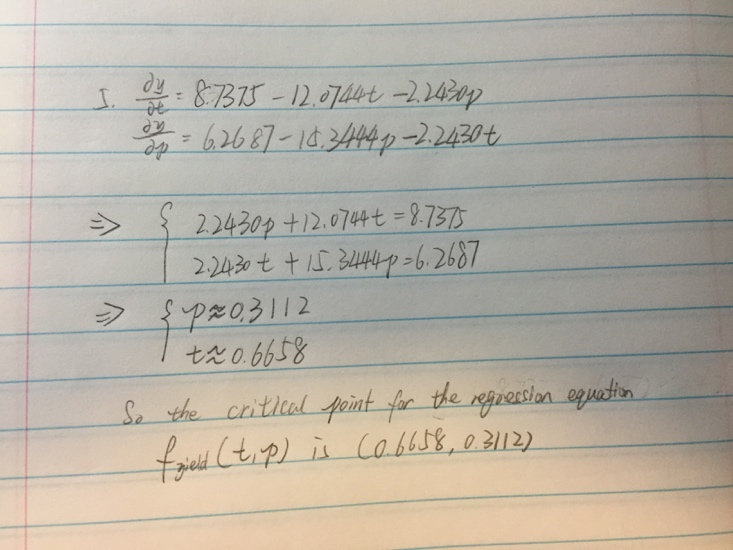 I. ∂y/∂t = 8.7375 - 12.0744t - 2.2430p
∂y/∂p = 6.2687 - 15.3444p - 2.2430t
⇒ { 2.2430p + 12.0744t = 8.7375
2.2430t + 15.3444p = 6.2687
⇒ { p ≈ 0.3112
t ≈ 0.6658
So the critical point for the regression equation
f_yield (t, p) is (0.6658, 0.3112)